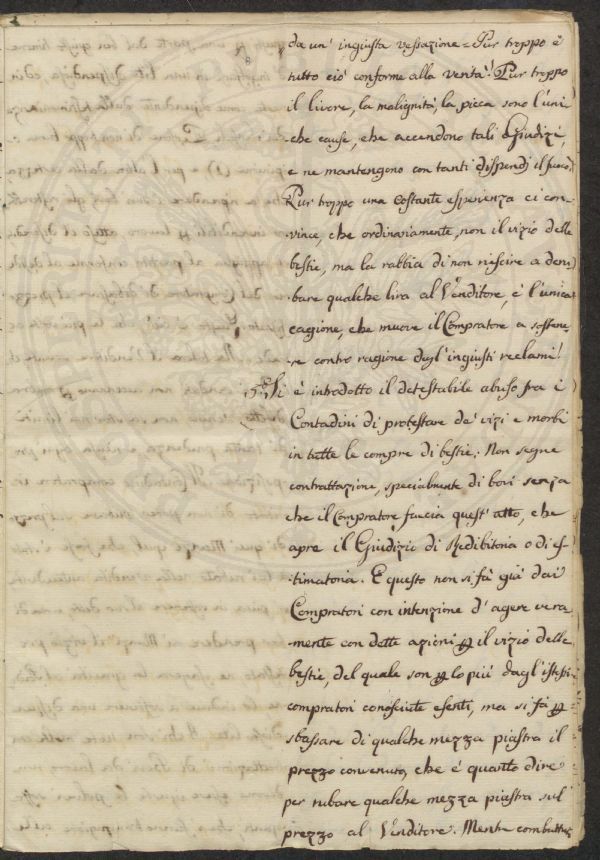 da un' ingiusta vessazione. Pur troppo è
tutto ciò conforme alla verità! Pur troppo
il livore, la malignità, la picca sono l'uni-
che cause, che accendono tali Giudizi,
e ne mantengono con tanti dispendj il fuoco.
Pur troppo una costante esperienza ci con-
vince, che ordinariamente, non il vizio delle
bestie, ma la rabbia di non riescire a deru-
bare qualche lira al Venditore, è l'unica
cagione, che muove il Compratore a sostene-
re contro ragione degl'ingiusti reclami!
5.º Si è introdotto il detestabile abuso fra i
Contadini di protestare de' vizi e morbi
in tutte le compre di bestie. Non segue
contrattazione, specialmente di bovi senza
che il Compratore faccia quest' atto, che
apre il Giudizio di Redibitoria o di es-
timatoria. E questo non si fà già dai
Compratori con intenzione d' agere vera-
mente con dette azioni ꝑ il vizio delle
bestie, del quale son ꝑ lo più dagl'istessi
compratori conosciute esenti, ma si fà ꝑ
sbassare di qualche mezza piastra il
prezzo convenuto, che è quanto dire
per rubare qualche mezza piastra sul
prezzo al Venditore. Mentre combattut